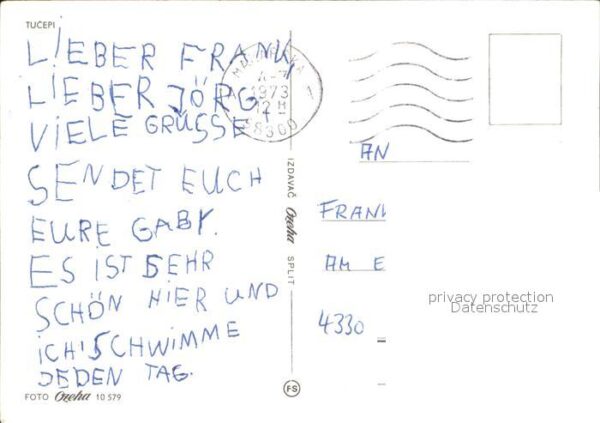 TUČEPI
LIEBER FRANK,
LIEBER JÖRG,
VIELE GRÜSSE
SENDET EUCH
EURE GABY.
ES IST SEHR
SCHÖN HIER UND
ICH SCHWIMME
JEDEN TAG.
FOTO Ozeha 10 579
IZDAVAČ Ozeha SPLIT
FS
MAKARSKA
1973
12 H
58300
AN
FRANK
AM E
4330
privacy protection
Datenschutz